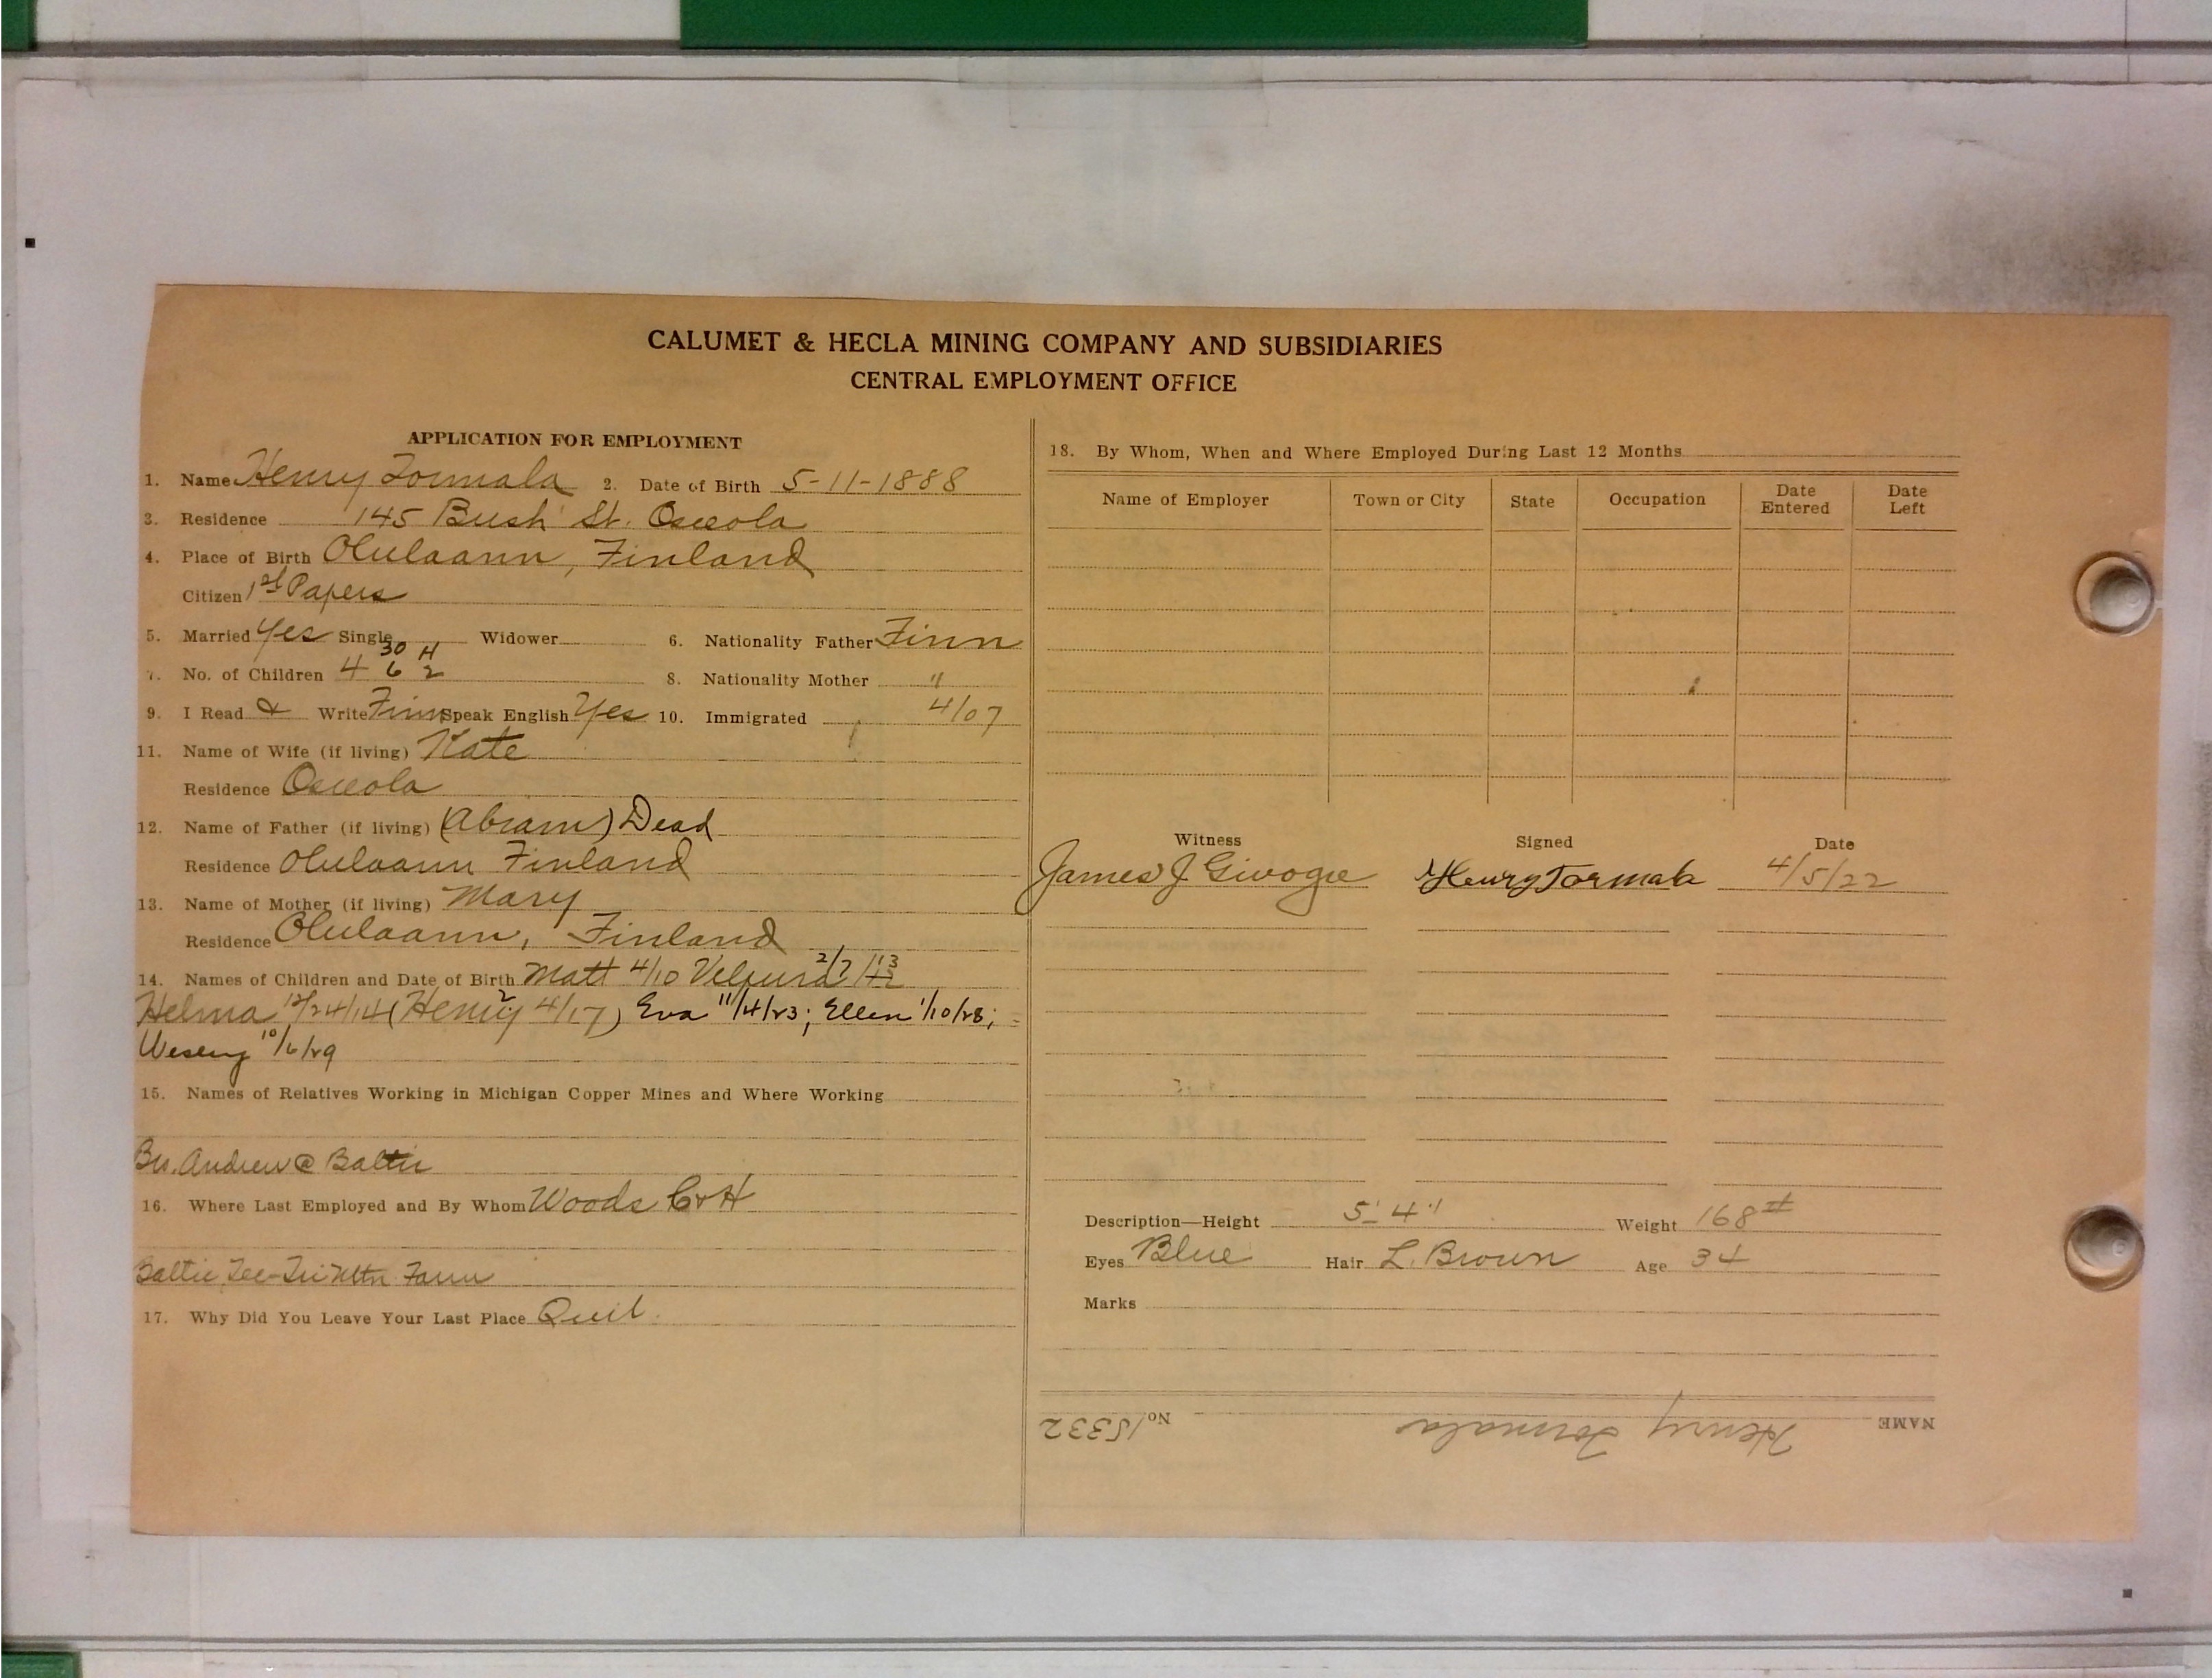 CALUMET & HECLA MINING COMPANY AND SUBSIDIARIES
CENTRAL EMPLOYMENT OFFICE
APPLICATION FOR EMPLOYMENT
1. Name Henry Tormala 2. Date of Birth 5-11-1888
3. Residence 145 Bush St. Osceola
4. Place of Birth Olulaann, Finland
Citizen 1st Papers
5. Married Yes Single Widower 6. Nationality Father Finn
30 H
7. No. of Children 4 6 2 8. Nationality Mother "
9. I Read & Write Finn Speak English Yes 10. Immigrated 4/07
11. Name of Wife (if living) Kate
Residence Osceola
12. Name of Father (if living) (Abram) Dead
Residence Olulaann Finland
13. Name of Mother (if living) Mary
Residence Olulaann, Finland
14. Names of Children and Date of Birth Matt 4/10 2/7/13
Helma 12/24/14 (Henry 4/17) Eva 11/14/23; Ellen 1/10/28;
10/6/29
15. Names of Relatives Working in Michigan Copper Mines and Where Working
Br. Andrew @ Baltic
16. Where Last Employed and By Whom Woods C & H
Baltic, Tri Mtn Farm
17. Why Did You Leave Your Last Place Quit.
18. By Whom, When and Where Employed During Last 12 Months
Name of Employer Town or City State Occupation Date Entered Date Left
Witness Signed Date
James J Givogre Henry Tormala 4/5/22
Description—Height 5' 4" Weight 168#
Eyes Blue Hair L. Brown Age 34
Marks
NAME Henry Tormala No 15332